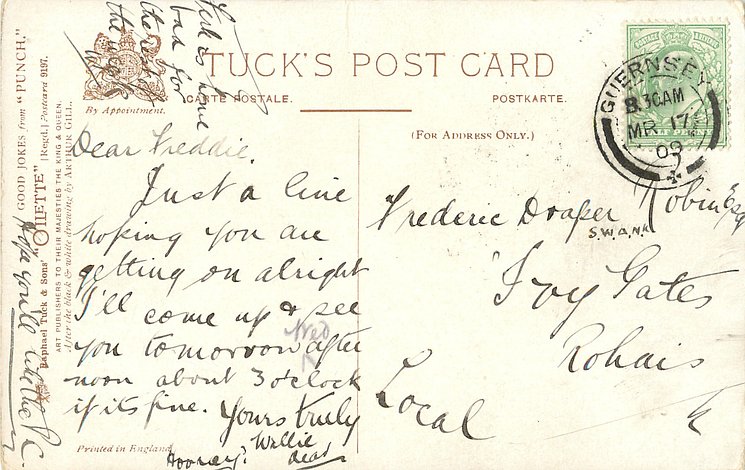 TUCK'S POST CARD
CARTE POSTALE.
POSTKARTE.
By Appointment.
(FOR ADDRESS ONLY.)
GUERNSEY
8.30AM
MR 17
09
GOOD JOKES from "PUNCH."
Raphael Tuck & Sons' "OILETTE" [Regd.] Postcard 9197.
ART PUBLISHERS TO THEIR MAJESTIES THE KING & QUEEN.
After the black & white drawing by ARTHUR GILL.
Printed in England
Dear Freddie.
Just a line
hoping you are
getting on alright
I'll come up & see
Wed
you tomorrow after
noon about 3 o'clock
if its fine. Yours truly
Willie
Hooray! dear
Hope you'll like the P.C.
home
bad for
the rest of
the week
Frederic Draper Robin Esq
S.W.A.N.K
Ivy Gates
Rohais
Local